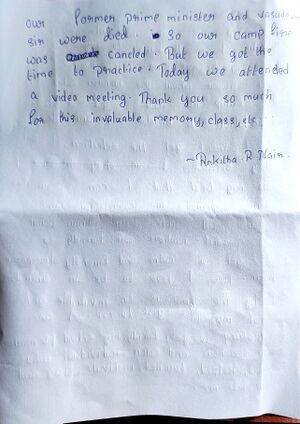 our former prime minister and vasudevan
sir were died. So our camp fire
was cancled. But we got the
time to practice. Today we attended
a video meeting. Thank you so much
for this invaluable memory, class, etc...
~Ankitha. R. Nair.